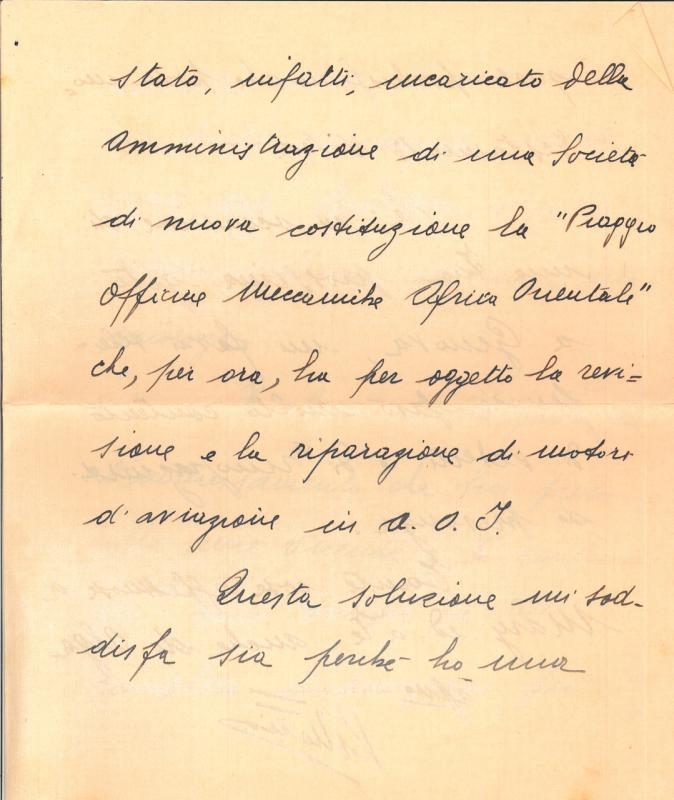 stato, infatti, incaricato della
Amministrazione di una Società
di nuova costituzione la "Piaggio
Officine Meccaniche Africa Orientale"
che, per ora, ha per oggetto la revi=
sione e la riparazione di motori
d'aviazione in A. O. I.
Questa soluzione mi sod-
disfa sia perchè ho una